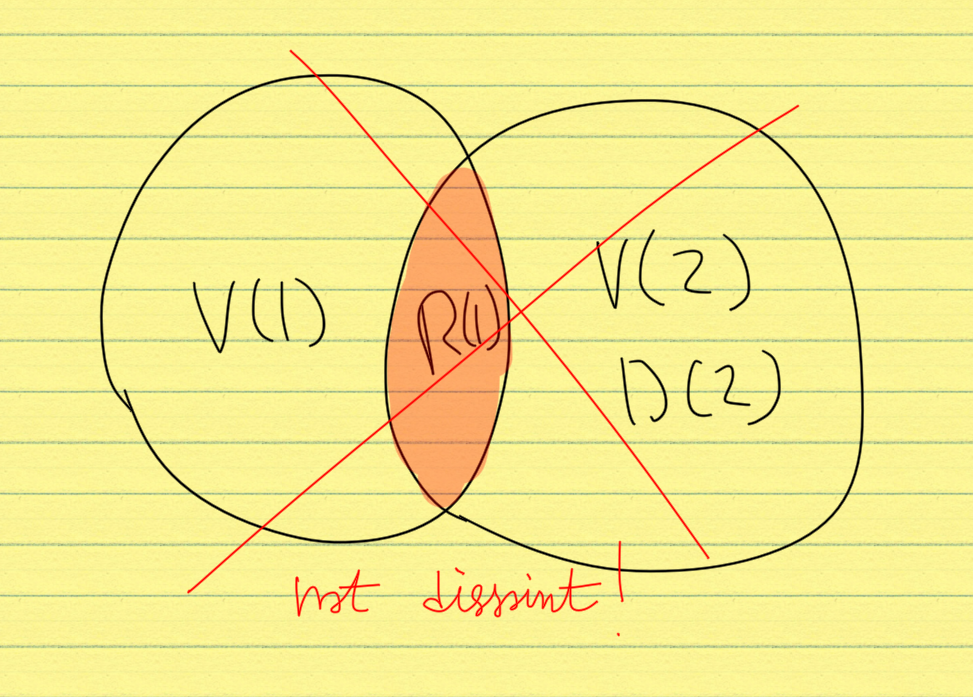 V(1)
R(1)
V(2)
D(2)
not dissoint!